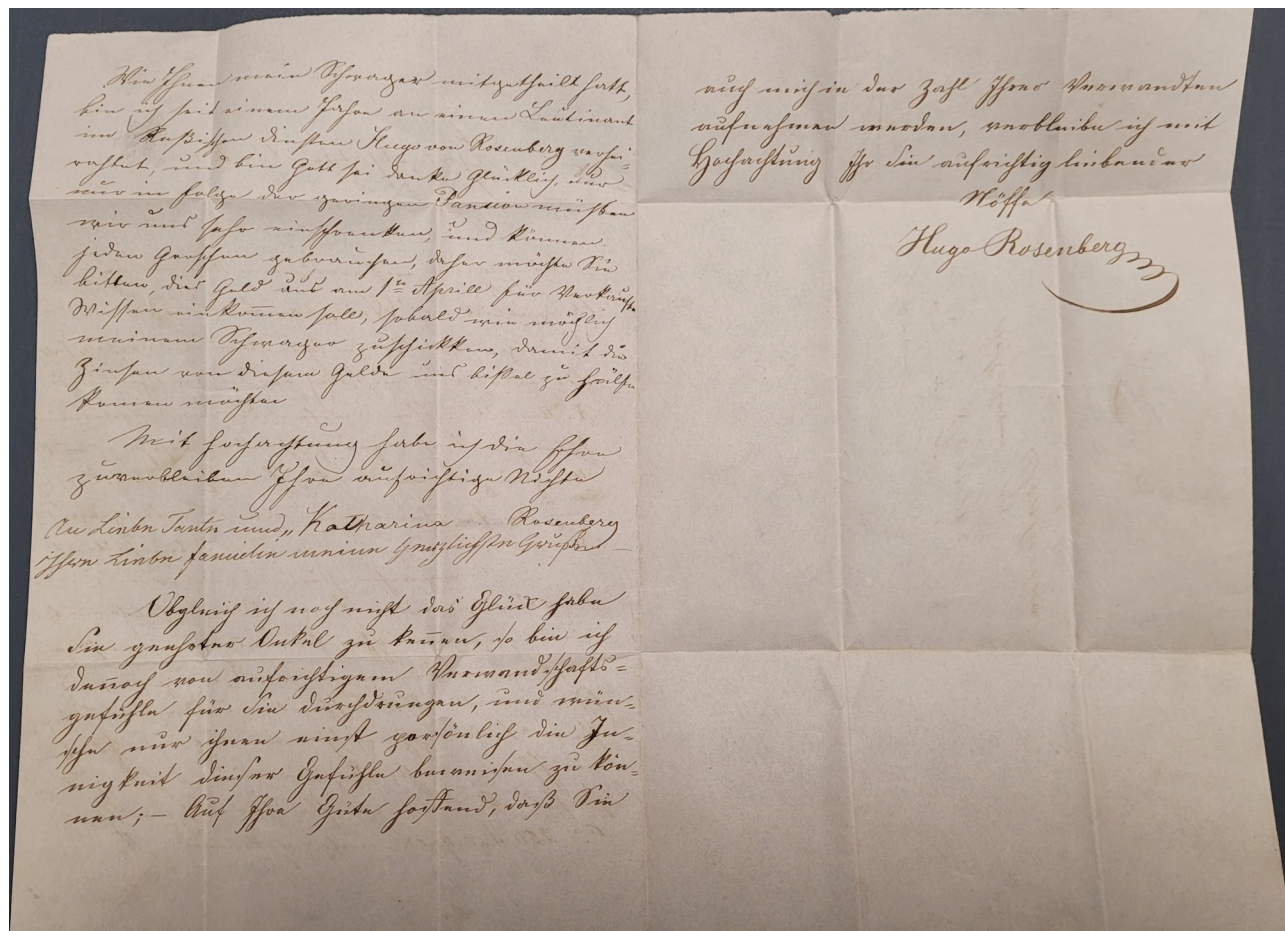 Wie Ihnen mein Schwager mitgetheilt hatt,
bin ich seit einem Jahre an einen Leutinant
im Rußischen diensten Hugo von Rosenberg verhei-
rahtet, und bin Gott sei danke Glücklich, nur
nur in folge der geringen Pansion müßen
wir uns sehr einschrenken, und können
jeden Groschen gebrauchen, daher möchte Sie
bitten, dies Geld das am 1ten Aprill für Verkaufte
Wissen einkom̄en soll, sobald wie möglich
meinem Schwager zuschickken, damit die
Zinsen von diesem Gelde uns bißel zu Hülfe
komen möchten
Mit Hochachtung habe ich die Ehre
zuverbleiben Ihre aufrichtige Nichte
An Liebe Tante und „ Katharina Rosenberg
Ihre Liebe familie meine herzlichste Grüße
Obgleich ich noch nicht das Glück habe
Sie geehrter Onkel zu ken̄en, so bin ich
den̄och von aufrichtigem Verwandschafts=
gefühle für Sie durchdrungen, und wün=
sche nur ihnen einst persönlich die In=
nigkeit dieser Gefühle beweisen zu kön=
nen; – Auf Ihre Güte hoffend, daß Sie
auch mich in der Zahl Ihrer Verwandten
aufnehmen werden, verbleibe ich mit
Hochachtung Ihr Sie aufrichtig liebender
Nöffe
Hugo Rosenberg